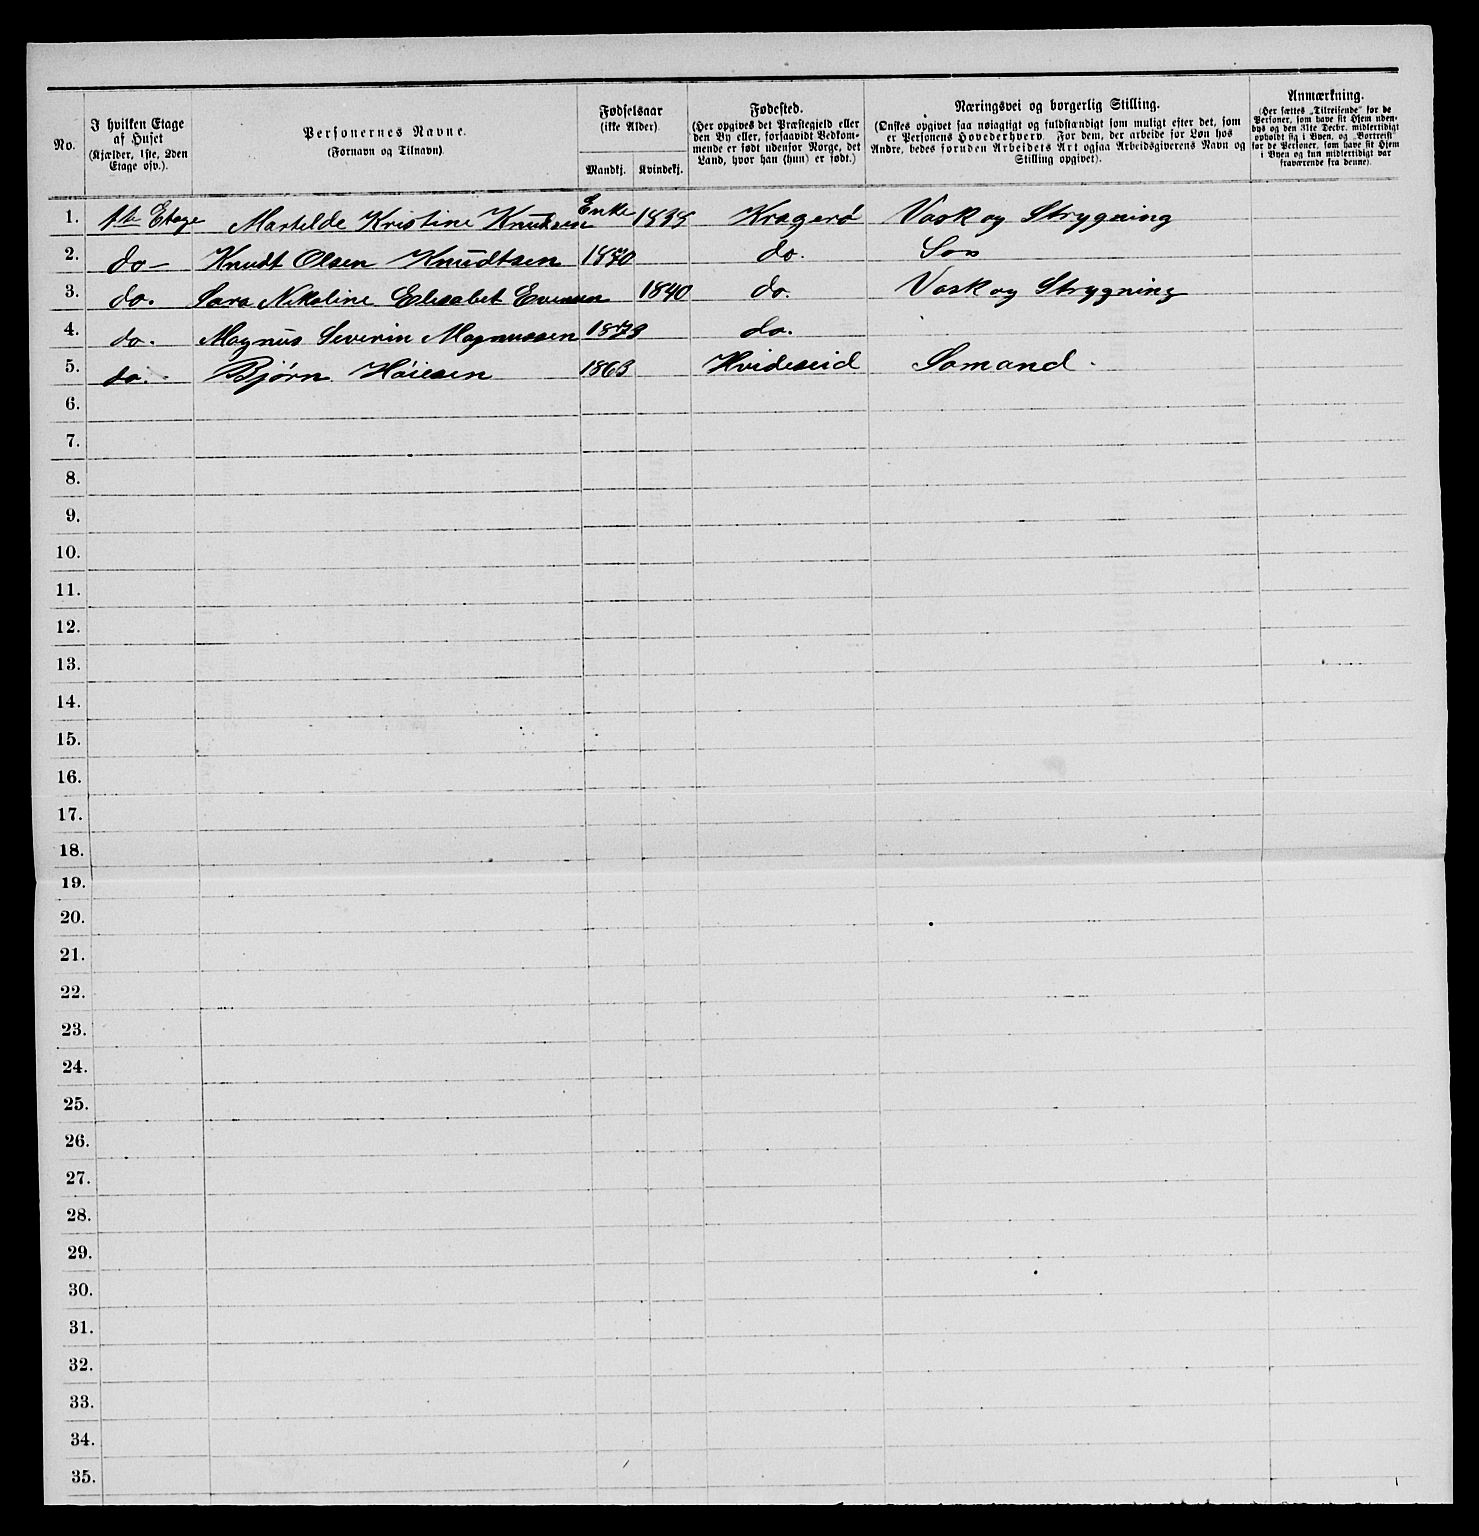 No.
I hvilken Etage
af Huset
(Kjælder, 1ste, 2den
Etage osv.).
Personernes Navne.
(Fornavn og Tilnavn).
Fødselsaar
(ikke Alder).
Mandkj. Kvindekj.
Fødested.
(Her opgives det Præstegjeld eller
den By eller, forsaavidt Vedkom-
mende er født udenfor Norge, det
Land, hvor han (hun) er født.)
Næringsvei og borgerlig Stilling.
(Ønskes opgivet saa nøiagtigt og fuldstændigt som muligt efter det, som
er Personens Hovederhverv. For dem, der arbeide for Løn hos
Andre, bedes foruden Arbeidets Art ogsaa Arbeidsgiverens Navn og
Stilling opgivet).
Anmærkning.
(Her sættes „Tilreisende" for de
Personer, som have sit Hjem uden-
bys og den 31te Decbr. midlertidigt
opholdt sig i Byen, og „Bortreist"
for de Personer, som have sit Hjem
i Byen og kun midlertidigt var
fraværende fra denne).
1. 1ste Etage Martelde Kristine Knudsen Enke Kragerø Vask og Strygning
2. do— Knudt Olsen Knudtsen 1870 do.
3. do. Sara Nikoline Elisabet Evensen 1840 do. Vask og Strygning
4. do. Magnus Severin Magnussen do.
5. do. Bjørn Høiesen 1863 Hvideseid Somand
6.
7.
8.
9.
10.
11.
12.
13.
14.
15.
16.
17.
18.
19.
20.
21.
22.
23.
24.
25.
26.
27.
28.
29.
30.
31.
32.
33.
34.
35.